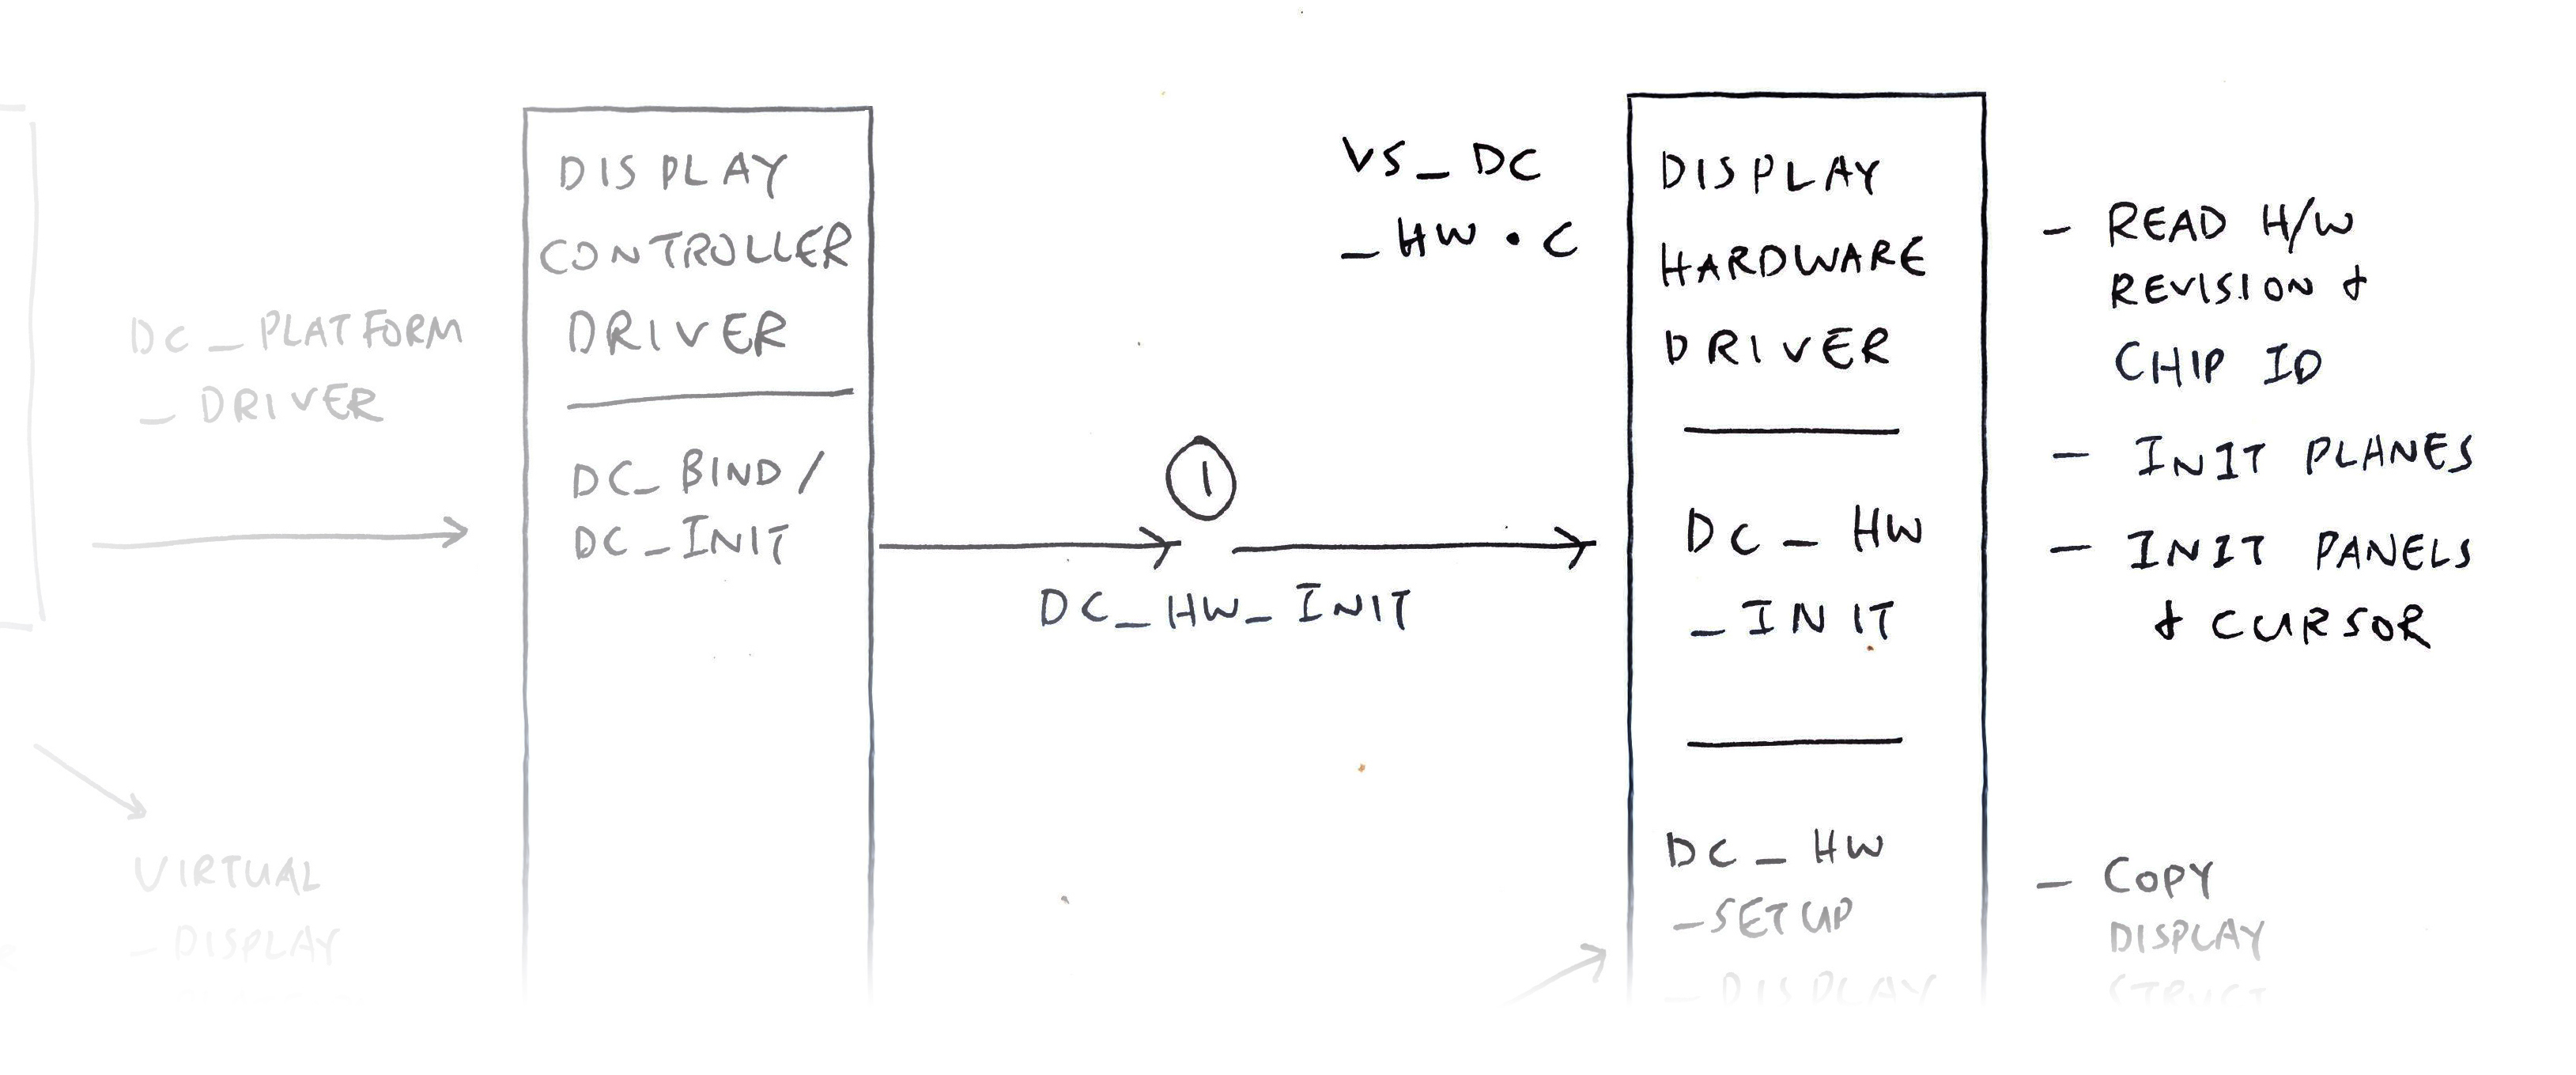 DC_PLATFORM
_DRIVER
VIRTUAL
_DISPLAY
DISPLAY
CONTROLLER
DRIVER
DC_BIND/
DC_INIT
1
DC_HW_INIT
VS_DC
_HW.C
DISPLAY
HARDWARE
DRIVER
DC_HW
_INIT
DC_HW
_SETUP
_DISPLAY
- READ H/W
REVISION &
CHIP ID
- INIT PLANES
- INIT PANELS
& CURSOR
- COPY
DISPLAY
STRUCT